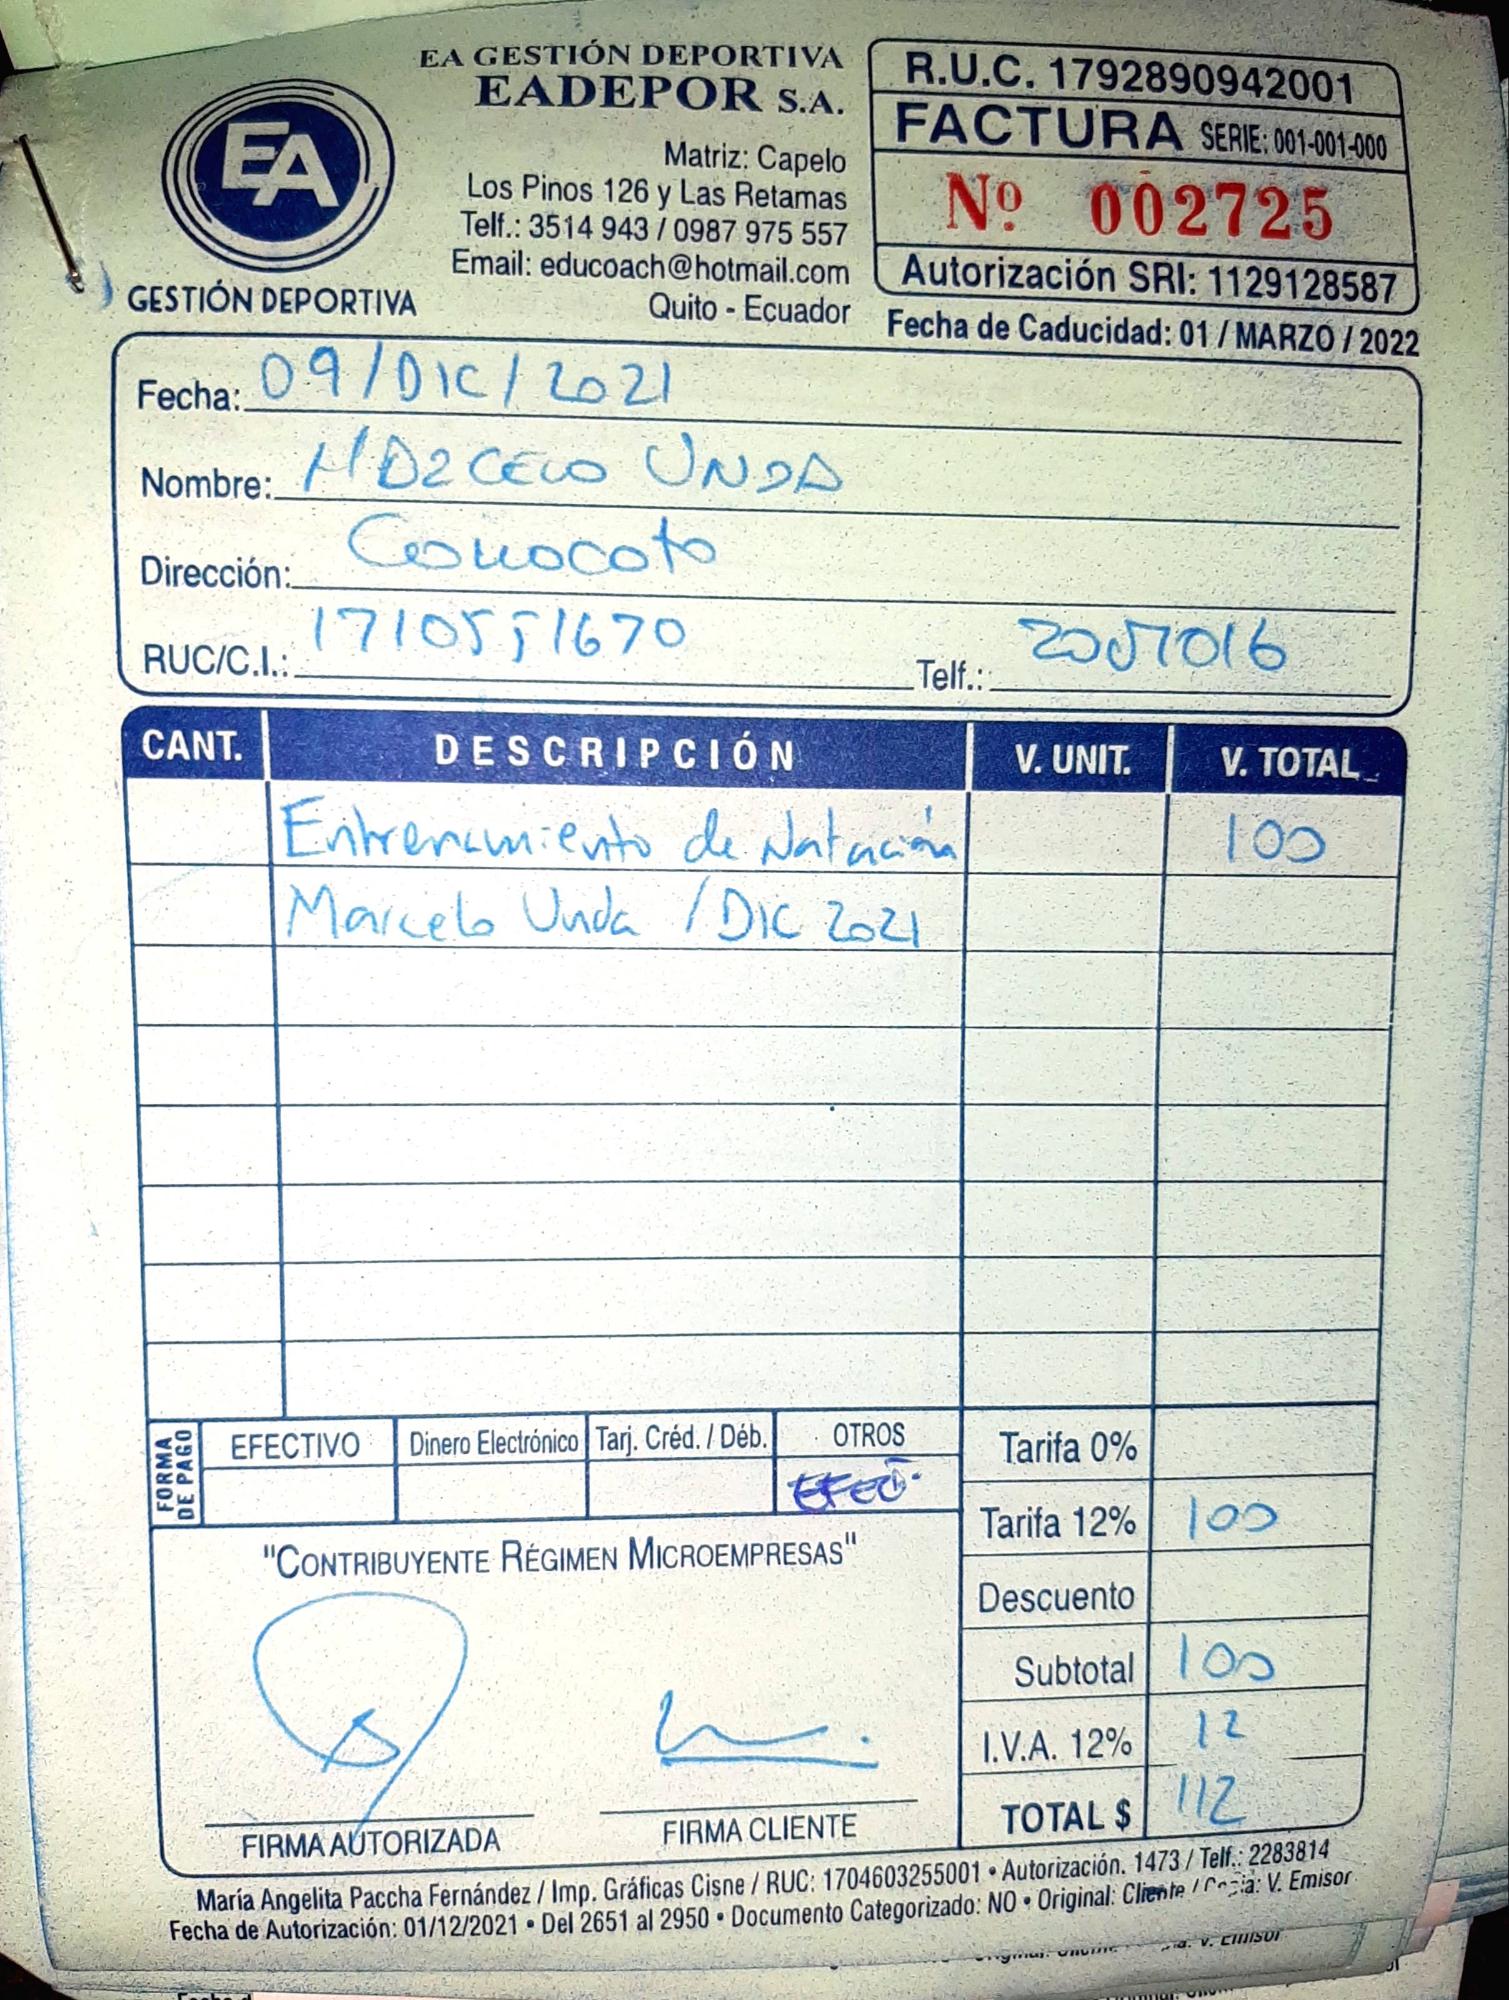 EA GESTIÓN DEPORTIVA
EADEPOR S.A.
EA
GESTIÓN DEPORTIVA
Matriz: Capelo
Los Pinos 126 y Las Retamas
Telf.: 3514 943 / 0987 975 557
Email: educoach@hotmail.com
Quito - Ecuador
R.U.C. 1792890942001
FACTURA SERIE: 001-001-000
Nº 002725
Autorización SRI: 1129128587
Fecha de Caducidad: 01 / MARZO / 2022
Fecha: 09/DIC/2021
Nombre: MARCELO UNDA
Dirección: Conocoto
RUC/C.I.: 1710551670 Telf.:
CANT. DESCRIPCIÓN V. UNIT. V. TOTAL
Entrenamiento de Natación 100
Marcelo Unda / DIC 2021
FORMA DE PAGO EFECTIVO Dinero Electrónico Tarj. Créd. / Déb. OTROS
EFEC.
Tarifa 0%
Tarifa 12% 100
Descuento
Subtotal 100
I.V.A. 12% 12
TOTAL $ 112
"CONTRIBUYENTE RÉGIMEN MICROEMPRESAS"
FIRMA AUTORIZADA FIRMA CLIENTE
María Angelita Paccha Fernández / Imp. Gráficas Cisne / RUC: 1704603255001 • Autorización. 1473 / Telf.: 2283814
Fecha de Autorización: 01/12/2021 • Del 2651 al 2950 • Documento Categorizado: NO • Original: Cliente / Copia: V. Emisor